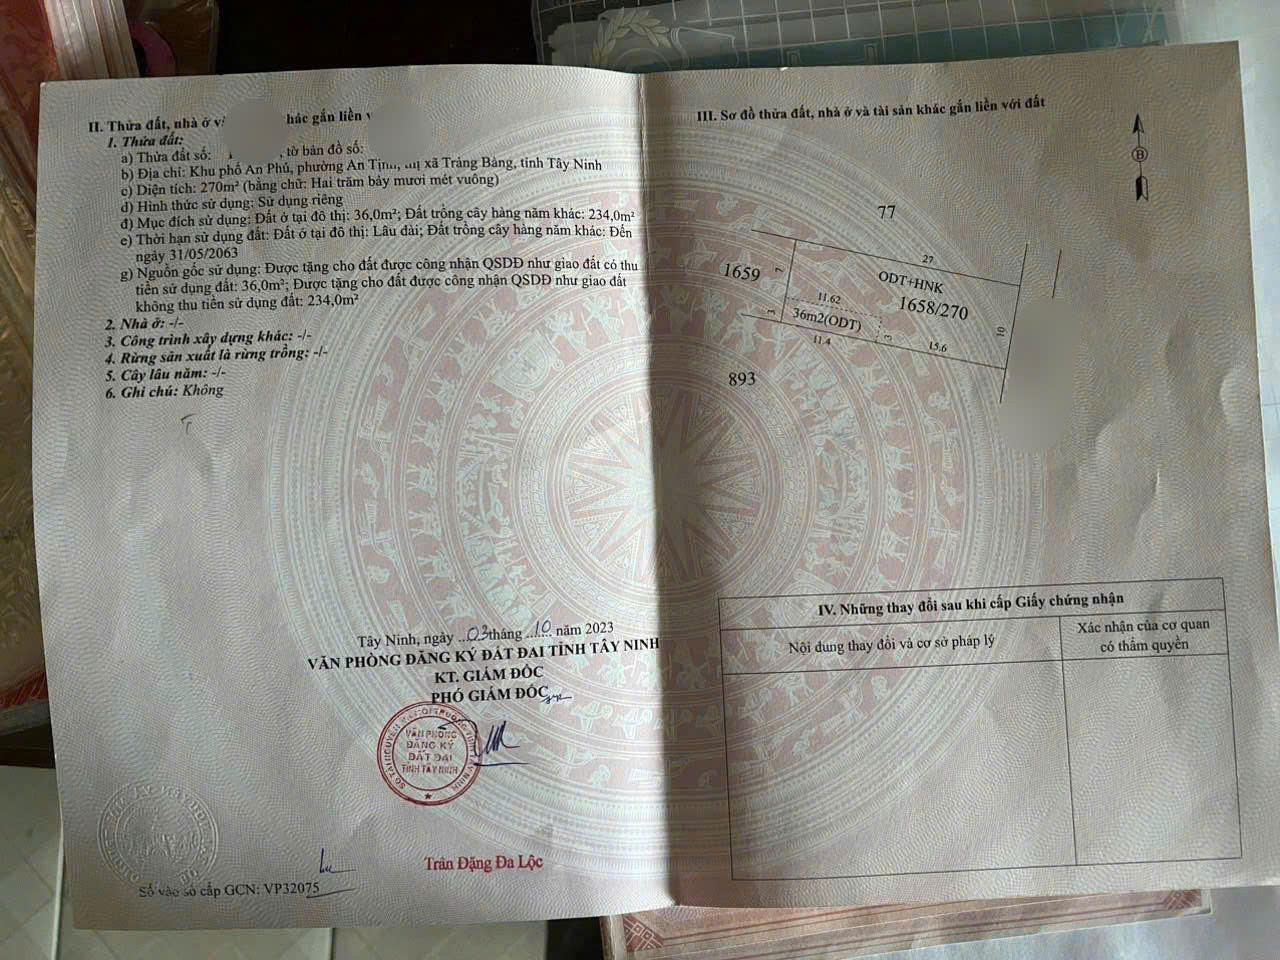 II. Thửa đất, nhà ở v hác gắn liền v
1. Thửa đất:
a) Thửa đất số: , tờ bản đồ số:
b) Địa chỉ: Khu phố An Phú, phường An Tịnh, thị xã Trảng Bàng, tỉnh Tây Ninh
c) Diện tích: 270m² (bằng chữ: Hai trăm bảy mươi mét vuông)
d) Hình thức sử dụng: Sử dụng riêng
đ) Mục đích sử dụng: Đất ở tại đô thị: 36,0m²; Đất trồng cây hàng năm khác: 234,0m²
e) Thời hạn sử dụng đất: Đất ở tại đô thị: Lâu dài; Đất trồng cây hàng năm khác: Đến
ngày 31/05/2063
g) Nguồn gốc sử dụng: Được tặng cho đất được công nhận QSDĐ như giao đất có thu
tiền sử dụng đất: 36,0m²; Được tặng cho đất được công nhận QSDĐ như giao đất
không thu tiền sử dụng đất: 234,0m²
2. Nhà ở: -/-
3. Công trình xây dựng khác: -/-
4. Rừng sản xuất là rừng trồng: -/-
5. Cây lâu năm: -/-
6. Ghi chú: Không
Tây Ninh, ngày ...03 tháng ...10... năm 2023
VĂN PHÒNG ĐĂNG KÝ ĐẤT ĐAI TỈNH TÂY NINH
KT. GIÁM ĐỐC
PHÓ GIÁM ĐỐC
VĂN PHÒNG
ĐĂNG KÝ
ĐẤT ĐAI
TỈNH TÂY NINH
Trần Đặng Đa Lộc
Số vào sổ cấp GCN: VP32075
III. Sơ đồ thửa đất, nhà ở và tài sản khác gắn liền với đất
B
77
27
1659
7
ODT+HNK
1658/270
11.62
3
36m2(ODT)
3
10
11.4
15.6
893
IV. Những thay đổi sau khi cấp Giấy chứng nhận
Nội dung thay đổi và cơ sở pháp lý
Xác nhận của cơ quan
có thẩm quyền